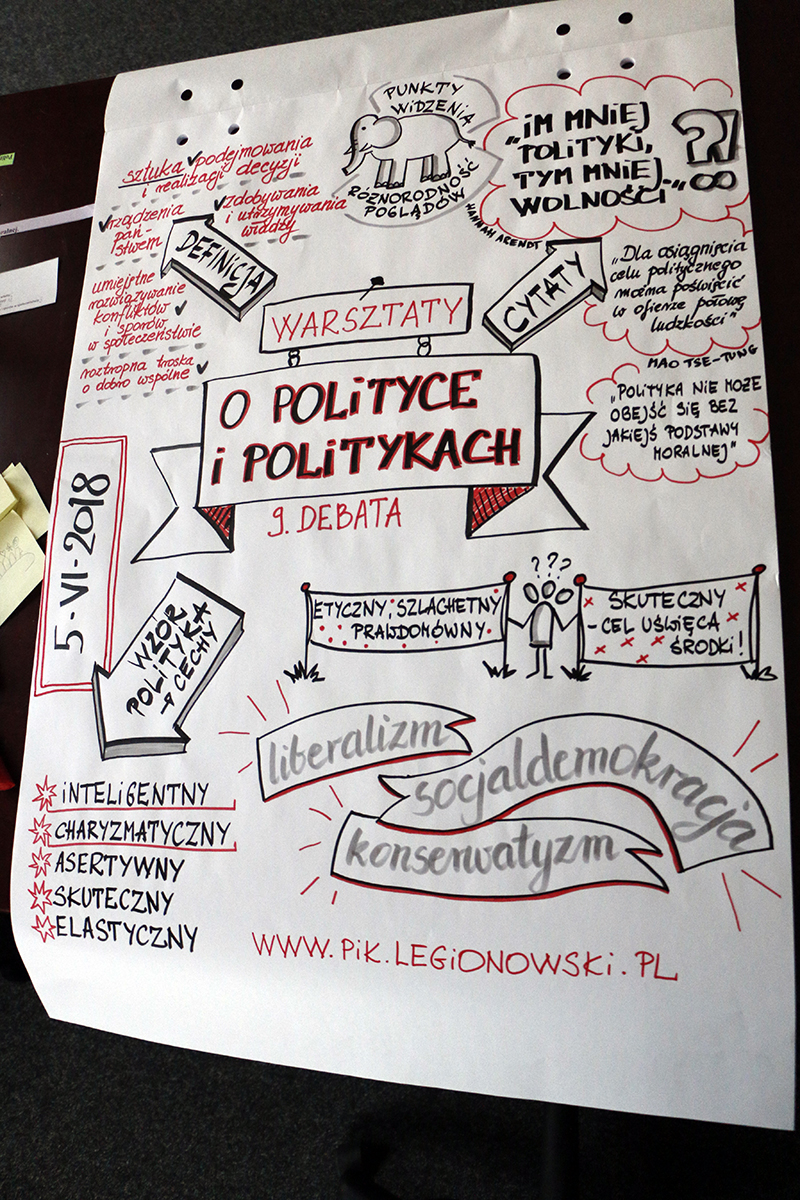 PUNKTY
WiDZENiA
RÓŻNORODNOŚĆ
POGLĄDÓW
sztuka ✓ podejmowania
i realizacji decyzji
✓ rządzenia
pań-
stwem
✓ zdobywania
i utrzymywania
władzy
umiejętne
rozwiązywanie
konfliktów ✓
i sporów
w społeczeństwie
roztropna troska ✓
o dobro wspólne
DEFINICJA
„iM MNIEJ
POLiTYKi,
TYM MNIEJ
WOLNOŚCi”
?!
HANNAH ARENDT
CYTATY
„Dla osiągnięcia
celu politycznego
można poświęcić
w ofierze połowę
ludzkości”
MAO TSE-TUNG
„POLITYKA NIE MOŻE
OBEJŚĆ SIĘ BEZ
JAKIEJŚ PODSTAWY
MORALNEJ”
WARSZTATY
O POLiTYCE
i POLiTYKACH
9. DEBATA
5-VI-2018
WZÓR
POLITYKA
→ CECHY
+
ETYCZNY, SZLACHETNY
PRAWDOMÓWNY
???
SKUTECZNY
- CEL UŚWIĘCA
ŚRODKI!
liberalizm
socjaldemokracja
konserwatyzm
iNTELiGENTNY
CHARYZMATYCZNY
ASERTYWNY
SKUTECZNY
ELASTYCZNY
WWW.PiK.LEGiONOWSKi.PL